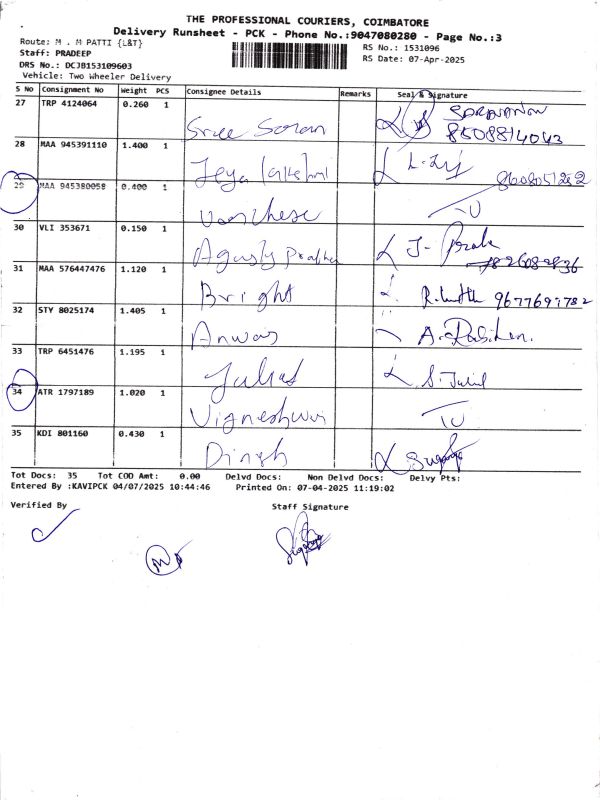 THE PROFESSIONAL COURIERS, COIMBATORE
Delivery Runsheet - PCK - Phone No.:9047080280 - Page No.:3
Route: M . M PATTI {L&T}
RS No.: 1531096
Staff: PRADEEP
DRS No.: DCJB153109603
RS Date: 07-Apr-2025
Vehicle: Two Wheeler Delivery
S No Consignment No Weight PCS Consignee Details Remarks Seal & Signature
27 TRP 4124064 0.260 1
Sree Saran 8508814043
28 MAA 945391110 1.400 1
Jeya
29 MAA 945380058 0.400 1
TU
30 VLI 353671 0.150 1
31 MAA 576447476 1.120 1
Bright 9677697782
32 STY 8025174 1.405 1
Anwar
33 TRP 6451476 1.195 1
34 ATR 1797189 1.020 1
Vigneshwari TU
35 KDI 801160 0.430 1
Tot Docs: 35 Tot COD Amt: 0.00 Delvd Docs: Non Delvd Docs: Delvy Pts:
Entered By :KAVIPCK 04/07/2025 10:44:46 Printed On: 07-04-2025 11:19:02
Verified By Staff Signature